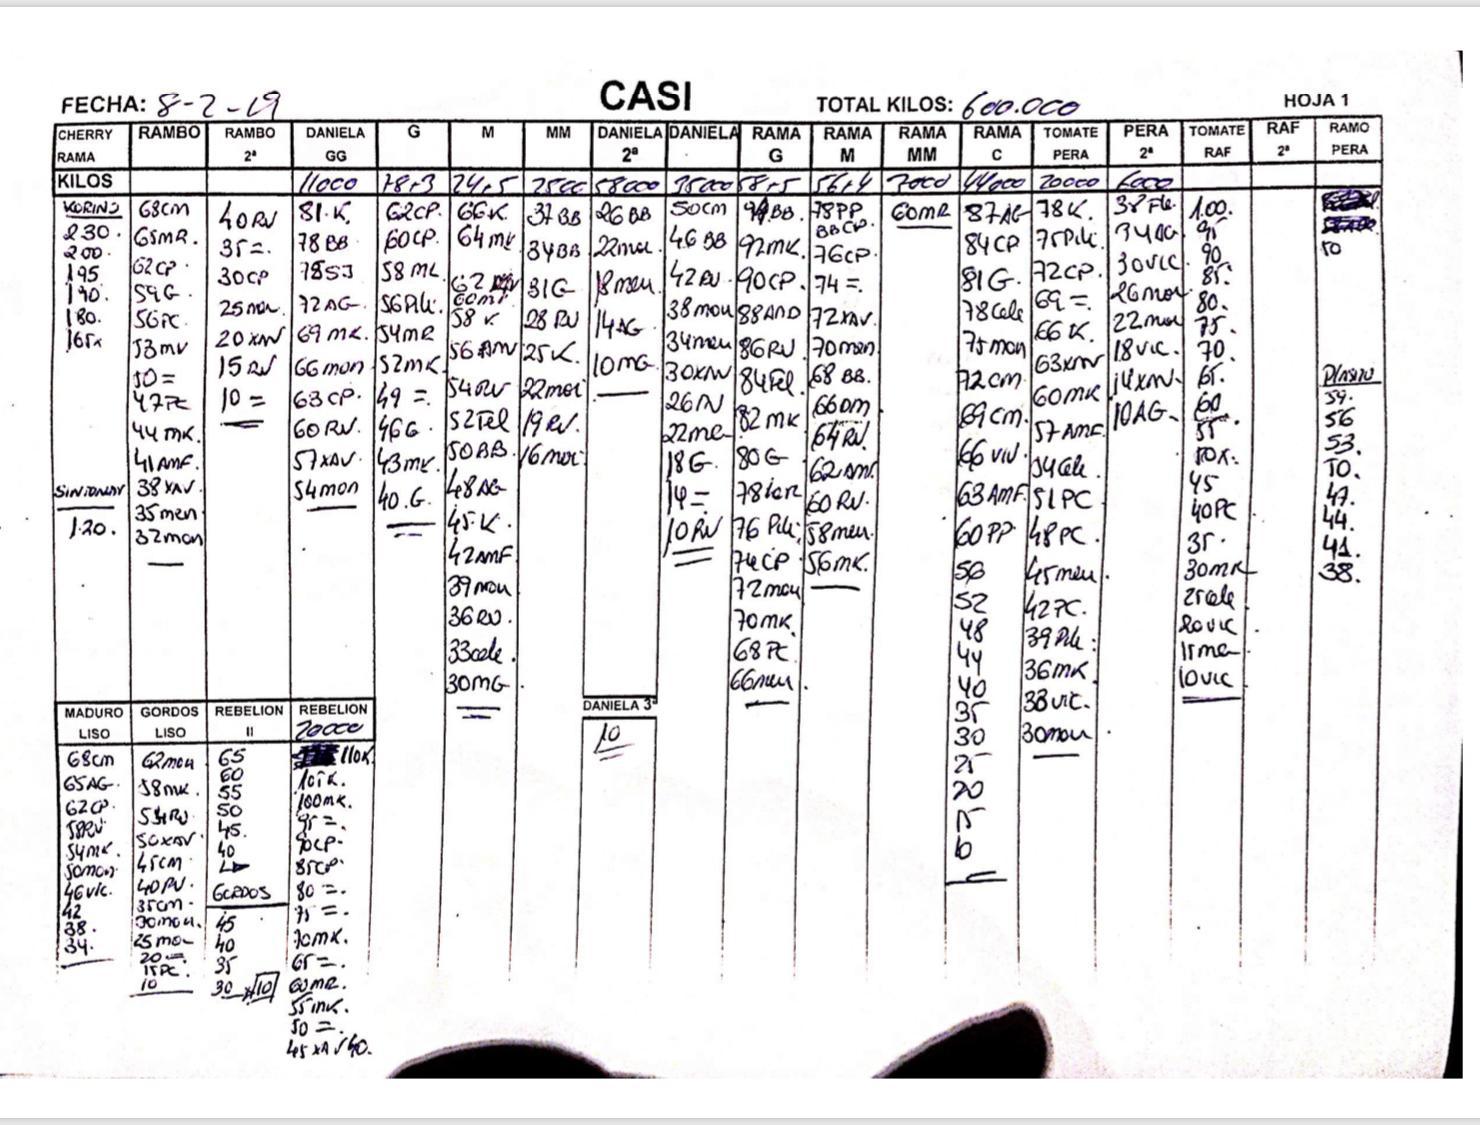 FECHA: 8-2-19 CASI TOTAL KILOS: 600.000 HOJA 1
CHERRY RAMA
RAMBO
RAMBO 2ª
DANIELA GG
G
M
MM
DANIELA 2ª
DANIELA
RAMA G
RAMA M
RAMA MM
RAMA C
TOMATE PERA
PERA 2ª
TOMATE RAF
RAF 2ª
RAMO PERA
KILOS 11000 58000 35000 7000 44000 20000 6000
230.
200.
195
190.
180.
1.20.
68cm
65MR.
62CP
59G
56PC
53mv
50=
47PC
44 MK.
41AMF.
38 XAV.
35men
32mon
40RV
35=.
30CP
25mon
20 XAV
15 RV
10 =
81.K.
78 BB
72 AG
69 MK.
66 mon
63 CP.
60 RV.
57XAV.
54mon
62CP.
60CP.
58 ML
56Pili.
54MR
52MK
49 =.
46G
43MK.
40.G.
66K.
64 MK
58 K
54RV
52Tel
50BB.
48AG
45.K.
42AMF.
39mon
36RV.
33cele.
30MG
37 BB
34BB
31G
28 RV
25K.
22moi
19 RV.
16moi
26 BB
22mou
18meu
14AG
10MG
DANIELA 3ª
10
50cm
46 BB
42RV
38mou
34meu
30XAV
26RV
22me
18G
14=
10RV
92MK.
90CP
88AND
86RV
84Tel
82 MK
80G
76 Pili
74CP
72mou
70MK
68 PC
66meu
78PP
BBCP.
76CP.
74 =.
72XAV.
70mon
68 BB.
66DM
64RV
62AMF.
60RV.
58meu
56MK.
60MR
87AG
84CP
81G
78Cele
75mon
72cm
69cm.
66 VIV
63AMF
60PP
56
52
48
44
40
35
30
25
20
15
10
78K.
75Pili
72CP.
69 =.
66K.
63XAV
60MK
57AMF.
54Cele.
51PC
48PC.
45meu
42PC.
39Pili
36MK
33VIC.
30mou
34AG
30VIC
26mou
22mou
18VIC.
14XAV
10AG
1.00.
95
90
85
80.
75.
70.
65.
60
55
50K.
45
40PC
35.
30MR
25cele
20VIC
15me
10VIC
50
59.
56
53.
50.
47.
44.
41.
38.
MADURO LISO
68cm
65AG.
62CP.
58RV
54MK.
50mon.
46VIC.
42
38.
34.
GORDOS LISO
62mou
58MK.
54RV
50XAV
45CM
40RV.
35cm
30mou.
25 mou
20 =.
15PC.
10
REBELION II
65
60
55
50
45.
40
GORDOS
45
40
35
30 x10
REBELION
20000
110K
105K.
100MK.
95 =.
90CP.
85CP.
80 =.
75 =.
70MK.
65 =.
60MR.
55MK.
50 =.
45 XAV 40.